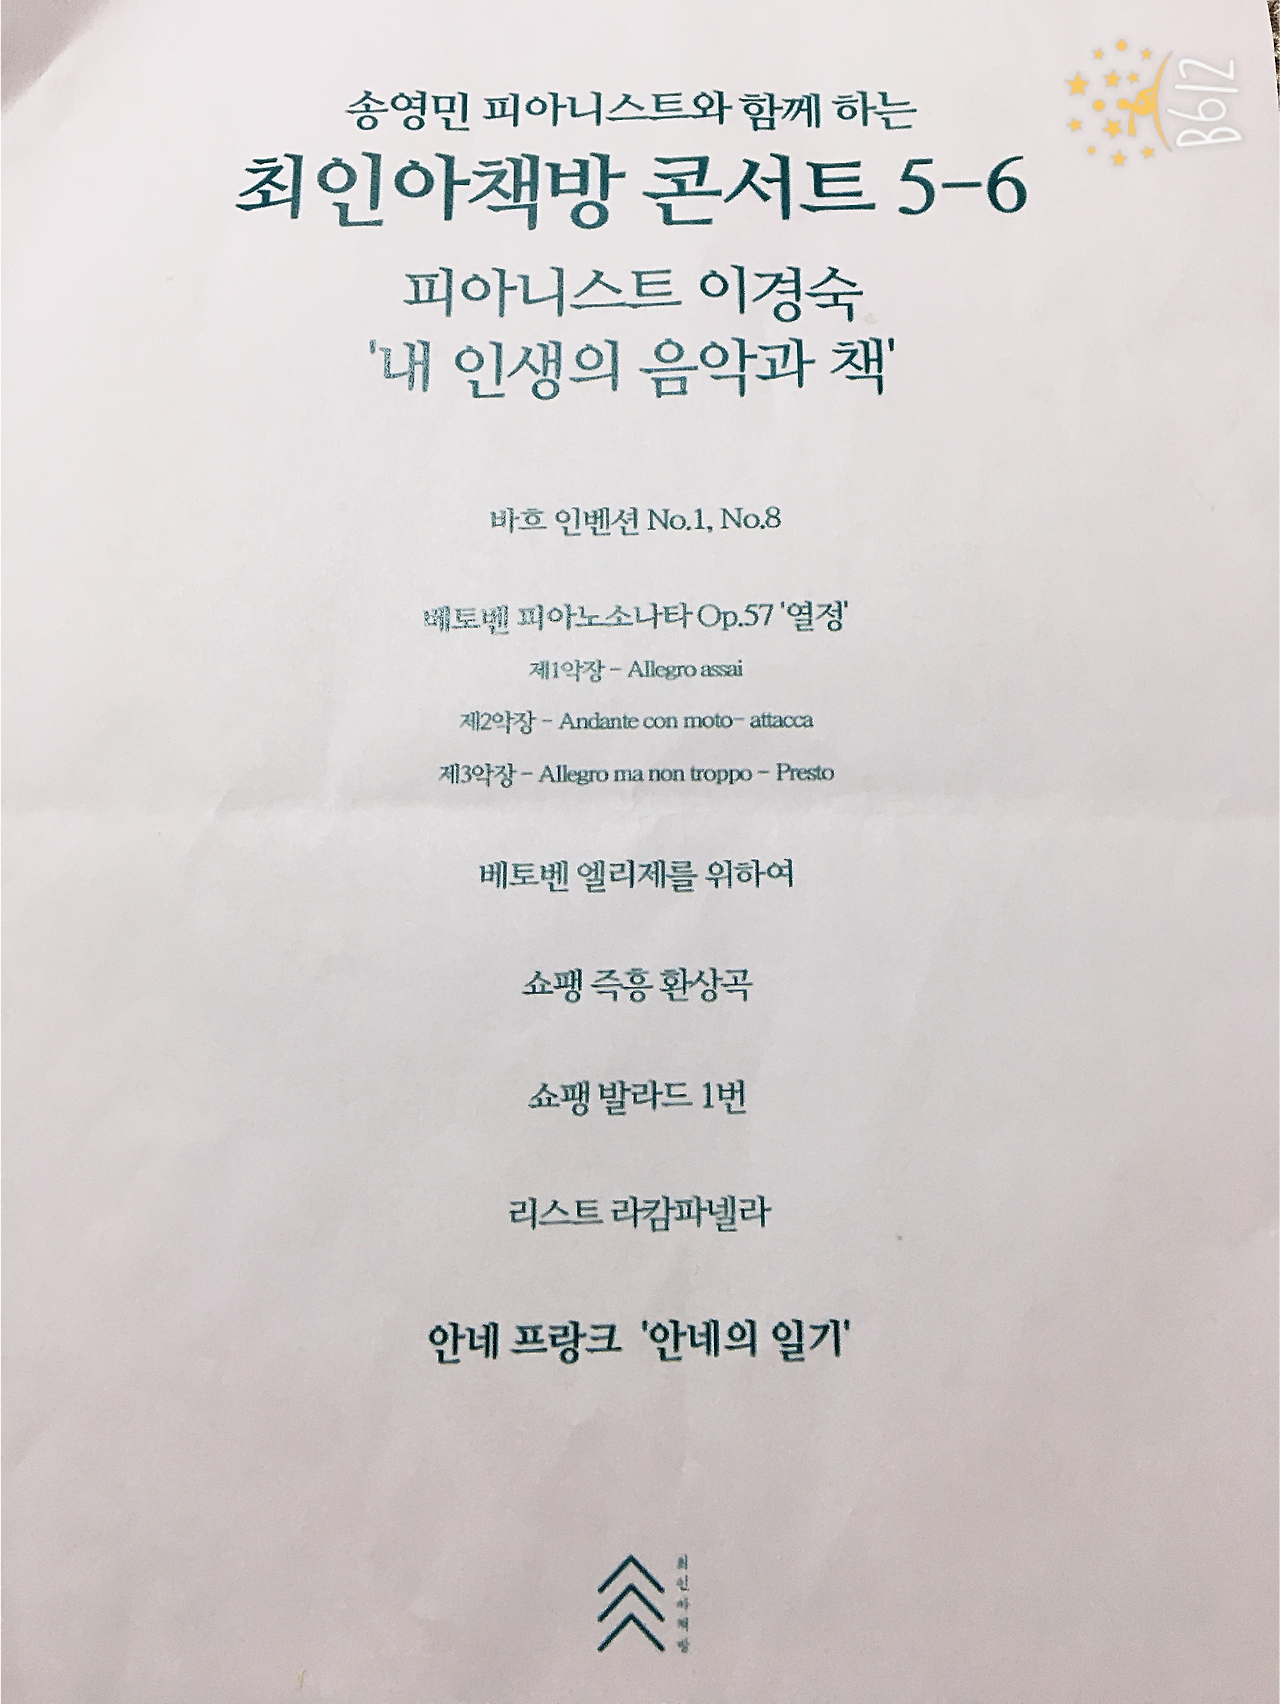 송영민 피아니스트와 함께 하는
최인아책방 콘서트 5-6
피아니스트 이경숙
'내 인생의 음악과 책'
바흐 인벤션 No.1, No.8
베토벤 피아노소나타 Op.57 '열정'
제1악장 - Allegro assai
제2악장 - Andante con moto- attacca
제3악장 - Allegro ma non troppo - Presto
베토벤 엘리제를 위하여
쇼팽 즉흥 환상곡
쇼팽 발라드 1번
리스트 라캄파넬라
안네 프랑크 '안네의 일기'
최인아책방
B612